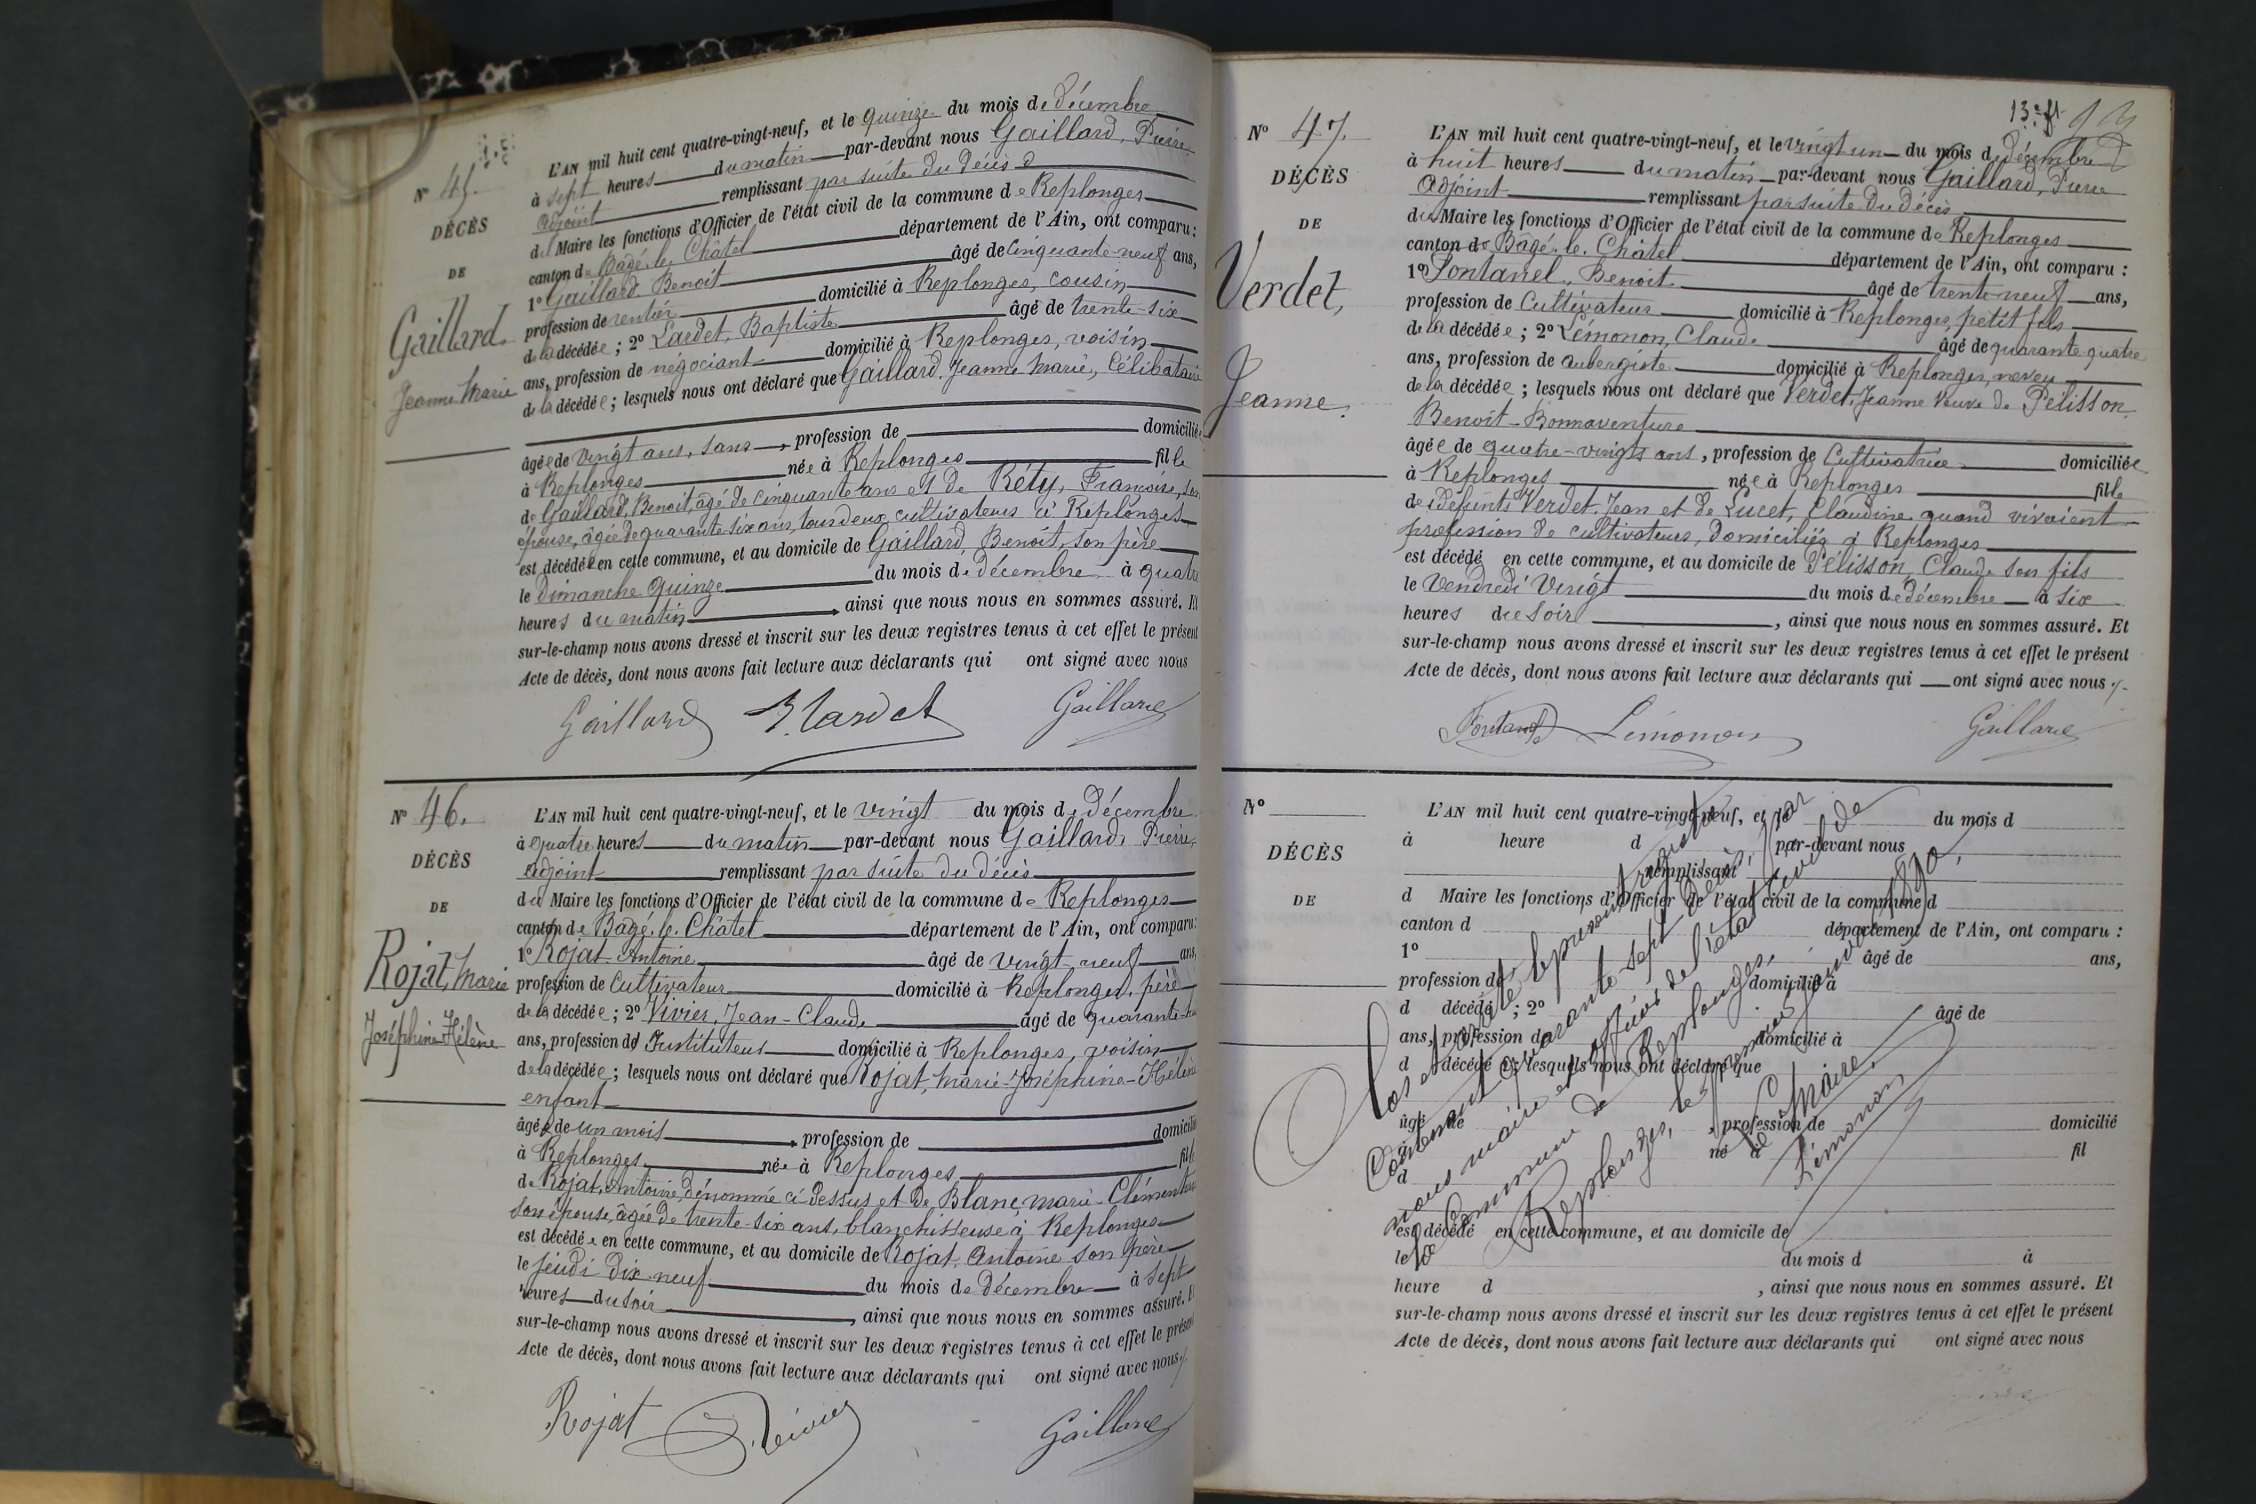 N° 45.
DÉCÈS
DE
Gaillard
Jeanne Marie
L'AN mil huit cent quatre-vingt-neuf, et le quinze du mois de décembre
à sept heures du matin par-devant nous Gaillard, Pierre
adjoint remplissant par suite du décès d
du Maire les fonctions d'Officier de l'état civil de la commune de Replonges
canton de Bâgé-le-Châtel département de l'Ain, ont comparu :
1° Gaillard Benoit âgé de cinquante-neuf ans,
profession de rentier domicilié à Replonges, cousin
de la décédée ; 2° Lardet, Baptiste âgé de trente-six
ans, profession de négociant domicilié à Replonges, voisin
de la décédée ; lesquels nous ont déclaré que Gaillard, Jeanne Marie, Célibataire
âgée de vingt ans, sans profession de domiciliée
à Replonges née à Replonges fille
de Gaillard, Benoit, âgé de cinquante ans et de Réty, Françoise, son
épouse, âgée de quarante-six ans, tous deux cultivateurs à Replonges
est décédée en cette commune, et au domicile de Gaillard, Benoit, son père
le Dimanche quinze du mois de décembre à quatre
heures du matin ainsi que nous nous en sommes assuré. Et
sur-le-champ nous avons dressé et inscrit sur les deux registres tenus à cet effet le présent
Acte de décès, dont nous avons fait lecture aux déclarants qui ont signé avec nous
Gaillard B. Lardet Gaillard
N° 46.
DÉCÈS
DE
Rojat, Marie
Joséphine-Hélène
L'AN mil huit cent quatre-vingt-neuf, et le vingt du mois de décembre
à quatre heures du matin par-devant nous Gaillard, Pierre,
adjoint remplissant par suite du décès
du Maire les fonctions d'Officier de l'état civil de la commune de Replonges
canton de Bâgé-le-Châtel département de l'Ain, ont comparu :
1° Rojat Antoine âgé de vingt-neuf ans,
profession de Cultivateur domicilié à Replonges, père
de la décédée ; 2° Vivier, Jean-Claude âgé de quarante-
ans, profession d'Instituteur domicilié à Replonges, voisin
de la décédée ; lesquels nous ont déclaré que Rojat, Marie-Joséphine-Hélène
enfant
âgée de un mois, profession de domiciliée
à Replonges née à Replonges fille
de Rojat, Antoine, dénommé ci-dessus et de Blanc Marie-Clémentine
son épouse, âgée de trente-six ans, blanchisseuse à Replonges
est décédée en cette commune, et au domicile de Rojat, Antoine son père
le jeudi dix-neuf du mois de décembre à sept
heures du soir, ainsi que nous nous en sommes assuré. Et
sur-le-champ nous avons dressé et inscrit sur les deux registres tenus à cet effet le présent
Acte de décès, dont nous avons fait lecture aux déclarants qui ont signé avec nous
Rojat Vivier Gaillard
13e ft
N° 47.
DÉCÈS
DE
Verdet,
Jeanne.
L'AN mil huit cent quatre-vingt-neuf, et le vingt un du mois de décembre
à huit heures du matin par-devant nous Gaillard, Pierre
Adjoint remplissant par suite du décès
du Maire les fonctions d'Officier de l'état civil de la commune de Replonges
canton de Bâgé-le-Châtel département de l'Ain, ont comparu :
1° Fontanel, Benoit âgé de trente-neuf ans,
profession de Cultivateur domicilié à Replonges, petit fils
de la décédée ; 2° Lémonon, Claude âgé de quarante-quatre
ans, profession de aubergiste domicilié à Replonges, neveu
de la décédée ; lesquels nous ont déclaré que Verdet, Jeanne Veuve de Pélisson
Benoit-Bonnaventure
âgée de quatre-vingts ans, profession de Cultivatrice domiciliée
à Replonges née à Replonges fille
de défunts Verdet, Jean et de Lucet, Claudine quand vivaient
profession de cultivateurs, domiciliés à Replonges
est décédé en cette commune, et au domicile de Pélisson, Claude son fils
le Vendredi Vingt du mois de décembre à six
heures du soir, ainsi que nous nous en sommes assuré. Et
sur-le-champ nous avons dressé et inscrit sur les deux registres tenus à cet effet le présent
Acte de décès, dont nous avons fait lecture aux déclarants qui ont signé avec nous
Fontanel Lémonon Gaillard
N°
DÉCÈS
DE
L'AN mil huit cent quatre-vingt-neuf, et le du mois d
à heure d par-devant nous
remplissant
d Maire les fonctions d'Officier de l'état civil de la commune d
canton d département de l'Ain, ont comparu :
1° âgé de ans,
profession de domicilié à
d décédé ; 2° âgé de
ans, profession de domicilié à
d décédé ; lesquels nous ont déclaré que
âgé de , profession de domicilié
à né à fil
d
est décédé en cette commune, et au domicile de
le du mois d à
heure d , ainsi que nous nous en sommes assuré. Et
sur-le-champ nous avons dressé et inscrit sur les deux registres tenus à cet effet le présent
Acte de décès, dont nous avons fait lecture aux déclarants qui ont signé avec nous
Clos et arrêté le présent registre
Contenant quarante-sept décès, par
nous maire et officier de l'état civil de
la Commune de Replonges,
Replonges, le premier janvier 1890,
Le Maire,
Lémonon